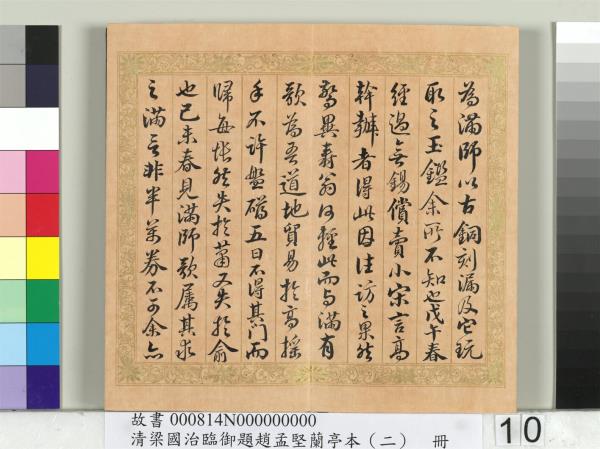 為滿師以古銅刻漏及它玩
取之玉鑑余所不知也戊午春
經過無錫償賣小宋言高
幹辦者得此因往訪之果然
驚異壽翁何輕此而与滿有
歌為吾道地貿易於高搖
手不許盤礴五日不得其門而
歸每悵然失於蕭又失於俞
也己未春見滿師歌屬其求
之滿言非半萬券不可余亦
故書 000814N000000000
清梁國治臨御題趙孟堅蘭亭本（二） 冊
10